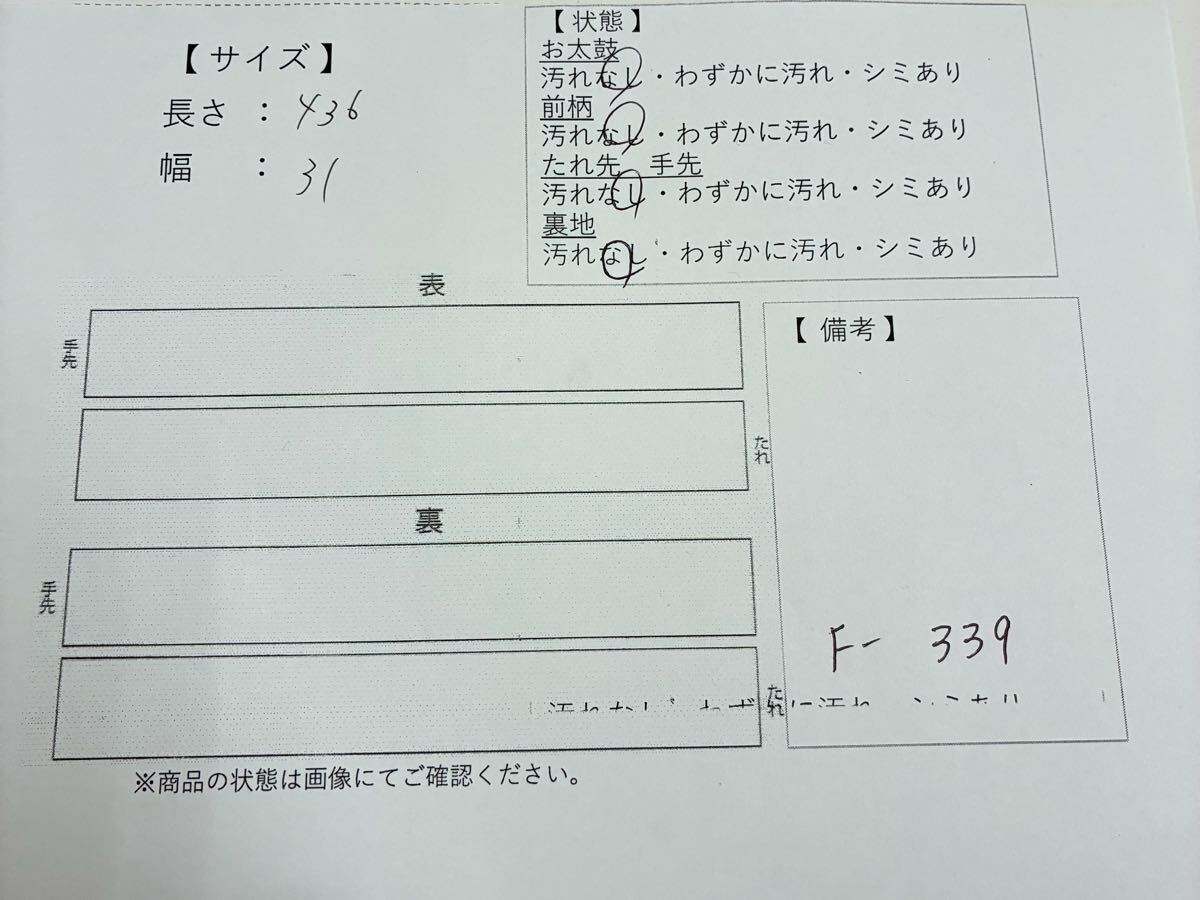 【 サイズ 】
長さ ： 436
幅 ： 31
【 状態 】
お太鼓
汚れなし・わずかに汚れ・シミあり
前柄
汚れなし・わずかに汚れ・シミあり
たれ先 手先
汚れなし・わずかに汚れ・シミあり
裏地
汚れなし・わずかに汚れ・シミあり
表
手先
たれ
裏
手先
たれ
【 備考 】
F- 339
汚れなし わずかに汚れ シミあり
※商品の状態は画像にてご確認ください。